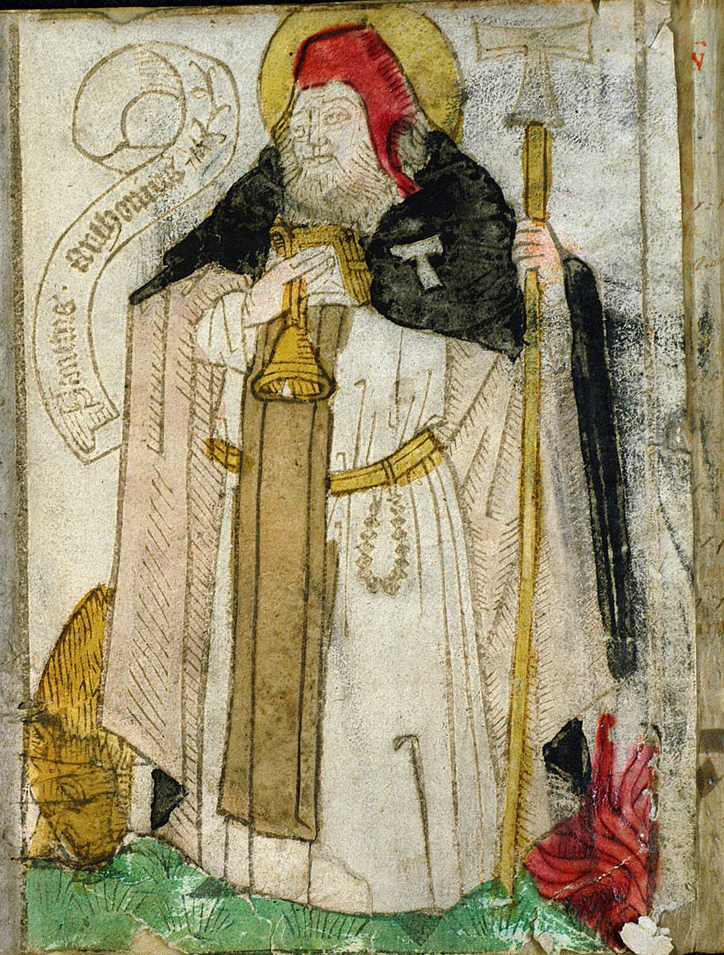 Sanctus · anthonius